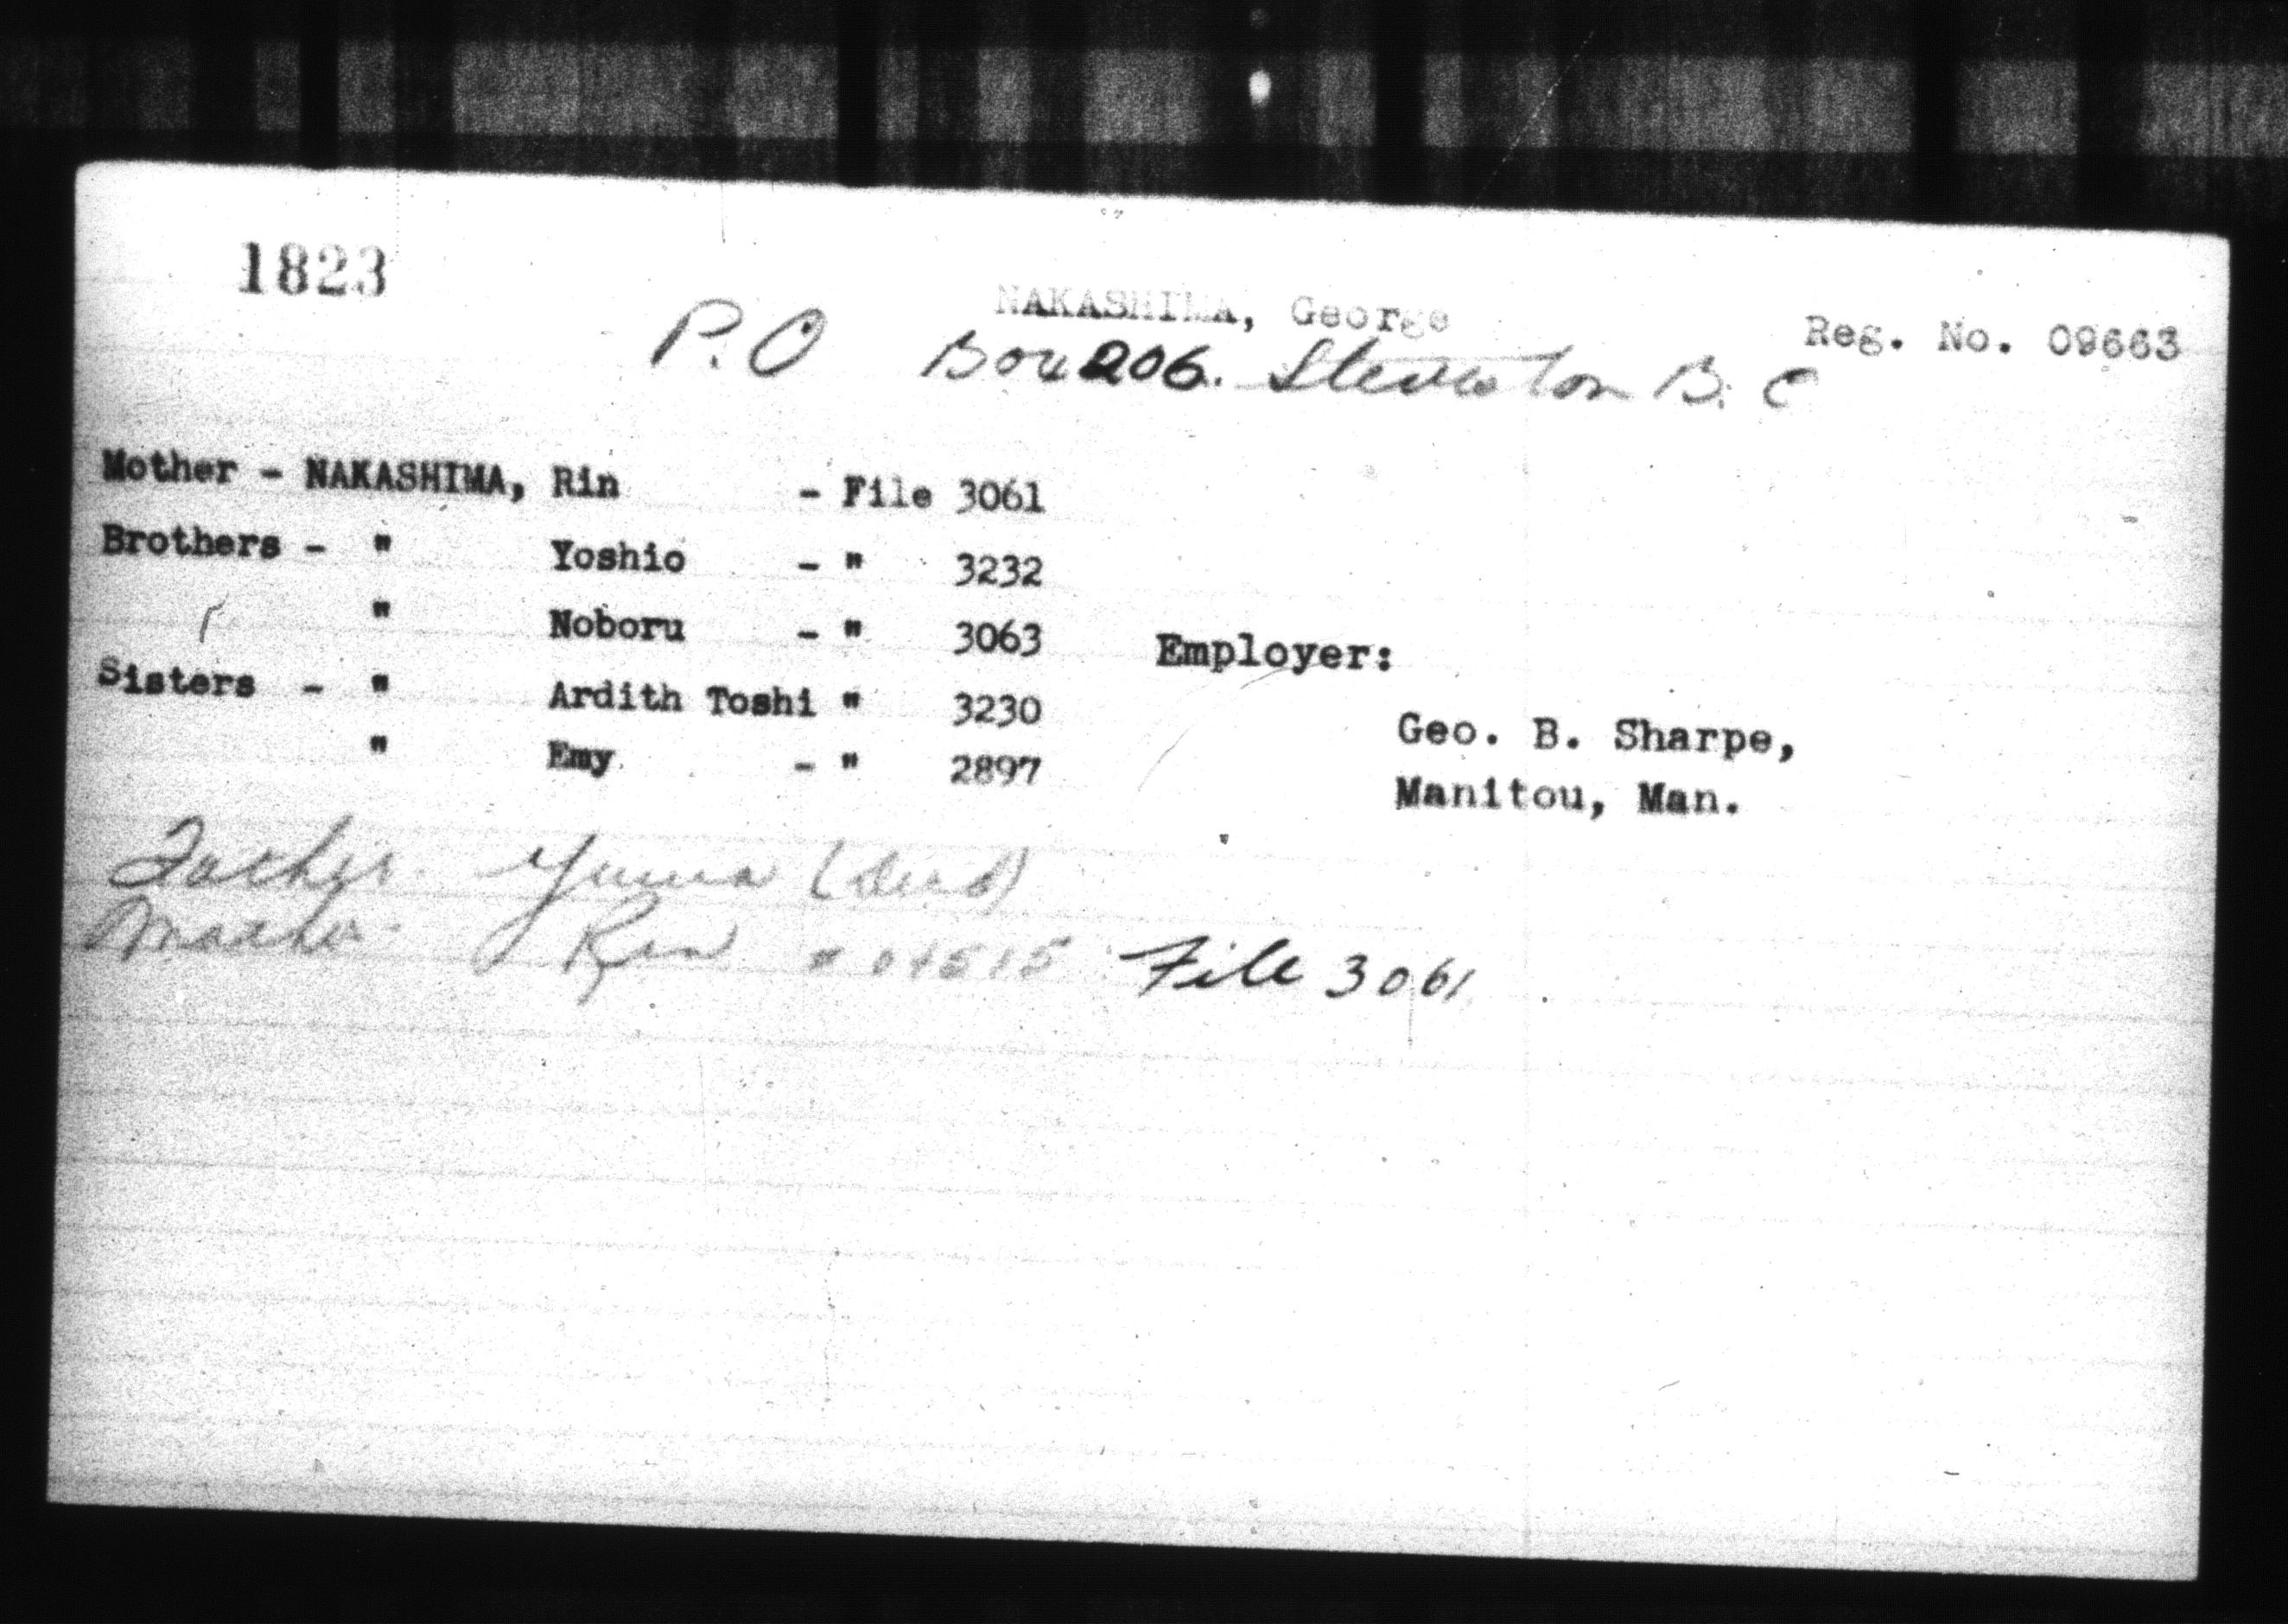 1823
NAKASHIMA, George
Reg. No. 09663
P.O Box 206. Steveston B.C
Mother - NAKASHIMA, Rin - File 3061
Brothers - " Yoshio - " 3232
" Noboru - " 3063
Sisters - " Ardith Toshi " 3230
" Emy - " 2897
Employer:
Geo. B. Sharpe,
Manitou, Man.
Father. (dead)
Mother. Rin File 3061